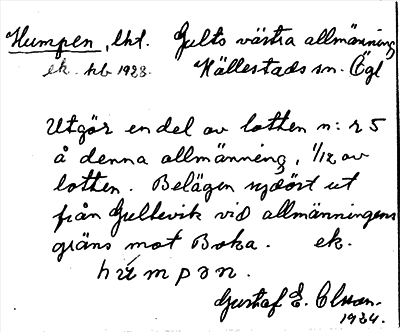 Humpen, lht. Gults västra allmänning
ek. hb 1923. Hällestads sn. Ögl
Utgör en del av lotten n:r 5
å denna allmänning, 1/12 av
lotten. Belägen sydöst ut
från Gullevik vid allmänningens
gräns mot Boka. ek.
húmpən.
Gustaf E. Olsson.
1934.